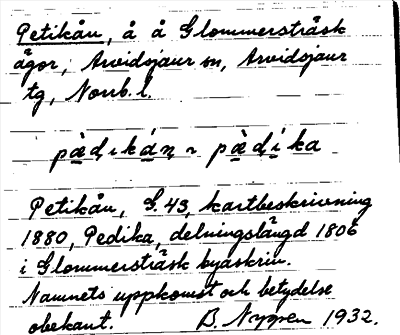 Petikån, å å Glommersträsk
ägor, Arvidsjaur sn, Arvidsjaur
tg, Norrb. l.
pàdıkán ~ pàdíka
Petikån, G. 43, kartbeskrivning
1880, Pedika, delningslängd 1806
i Glommersträsk byaskrin.
Namnets uppkomst och betydelse
obekant. B. 1932.